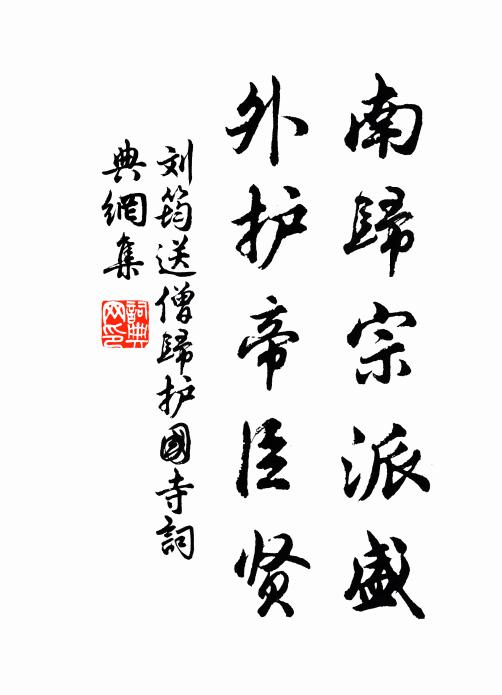 南歸宗派盛
外护帝臣贤
刘筠送僧歸护國寺詞
典網集
詞典網印